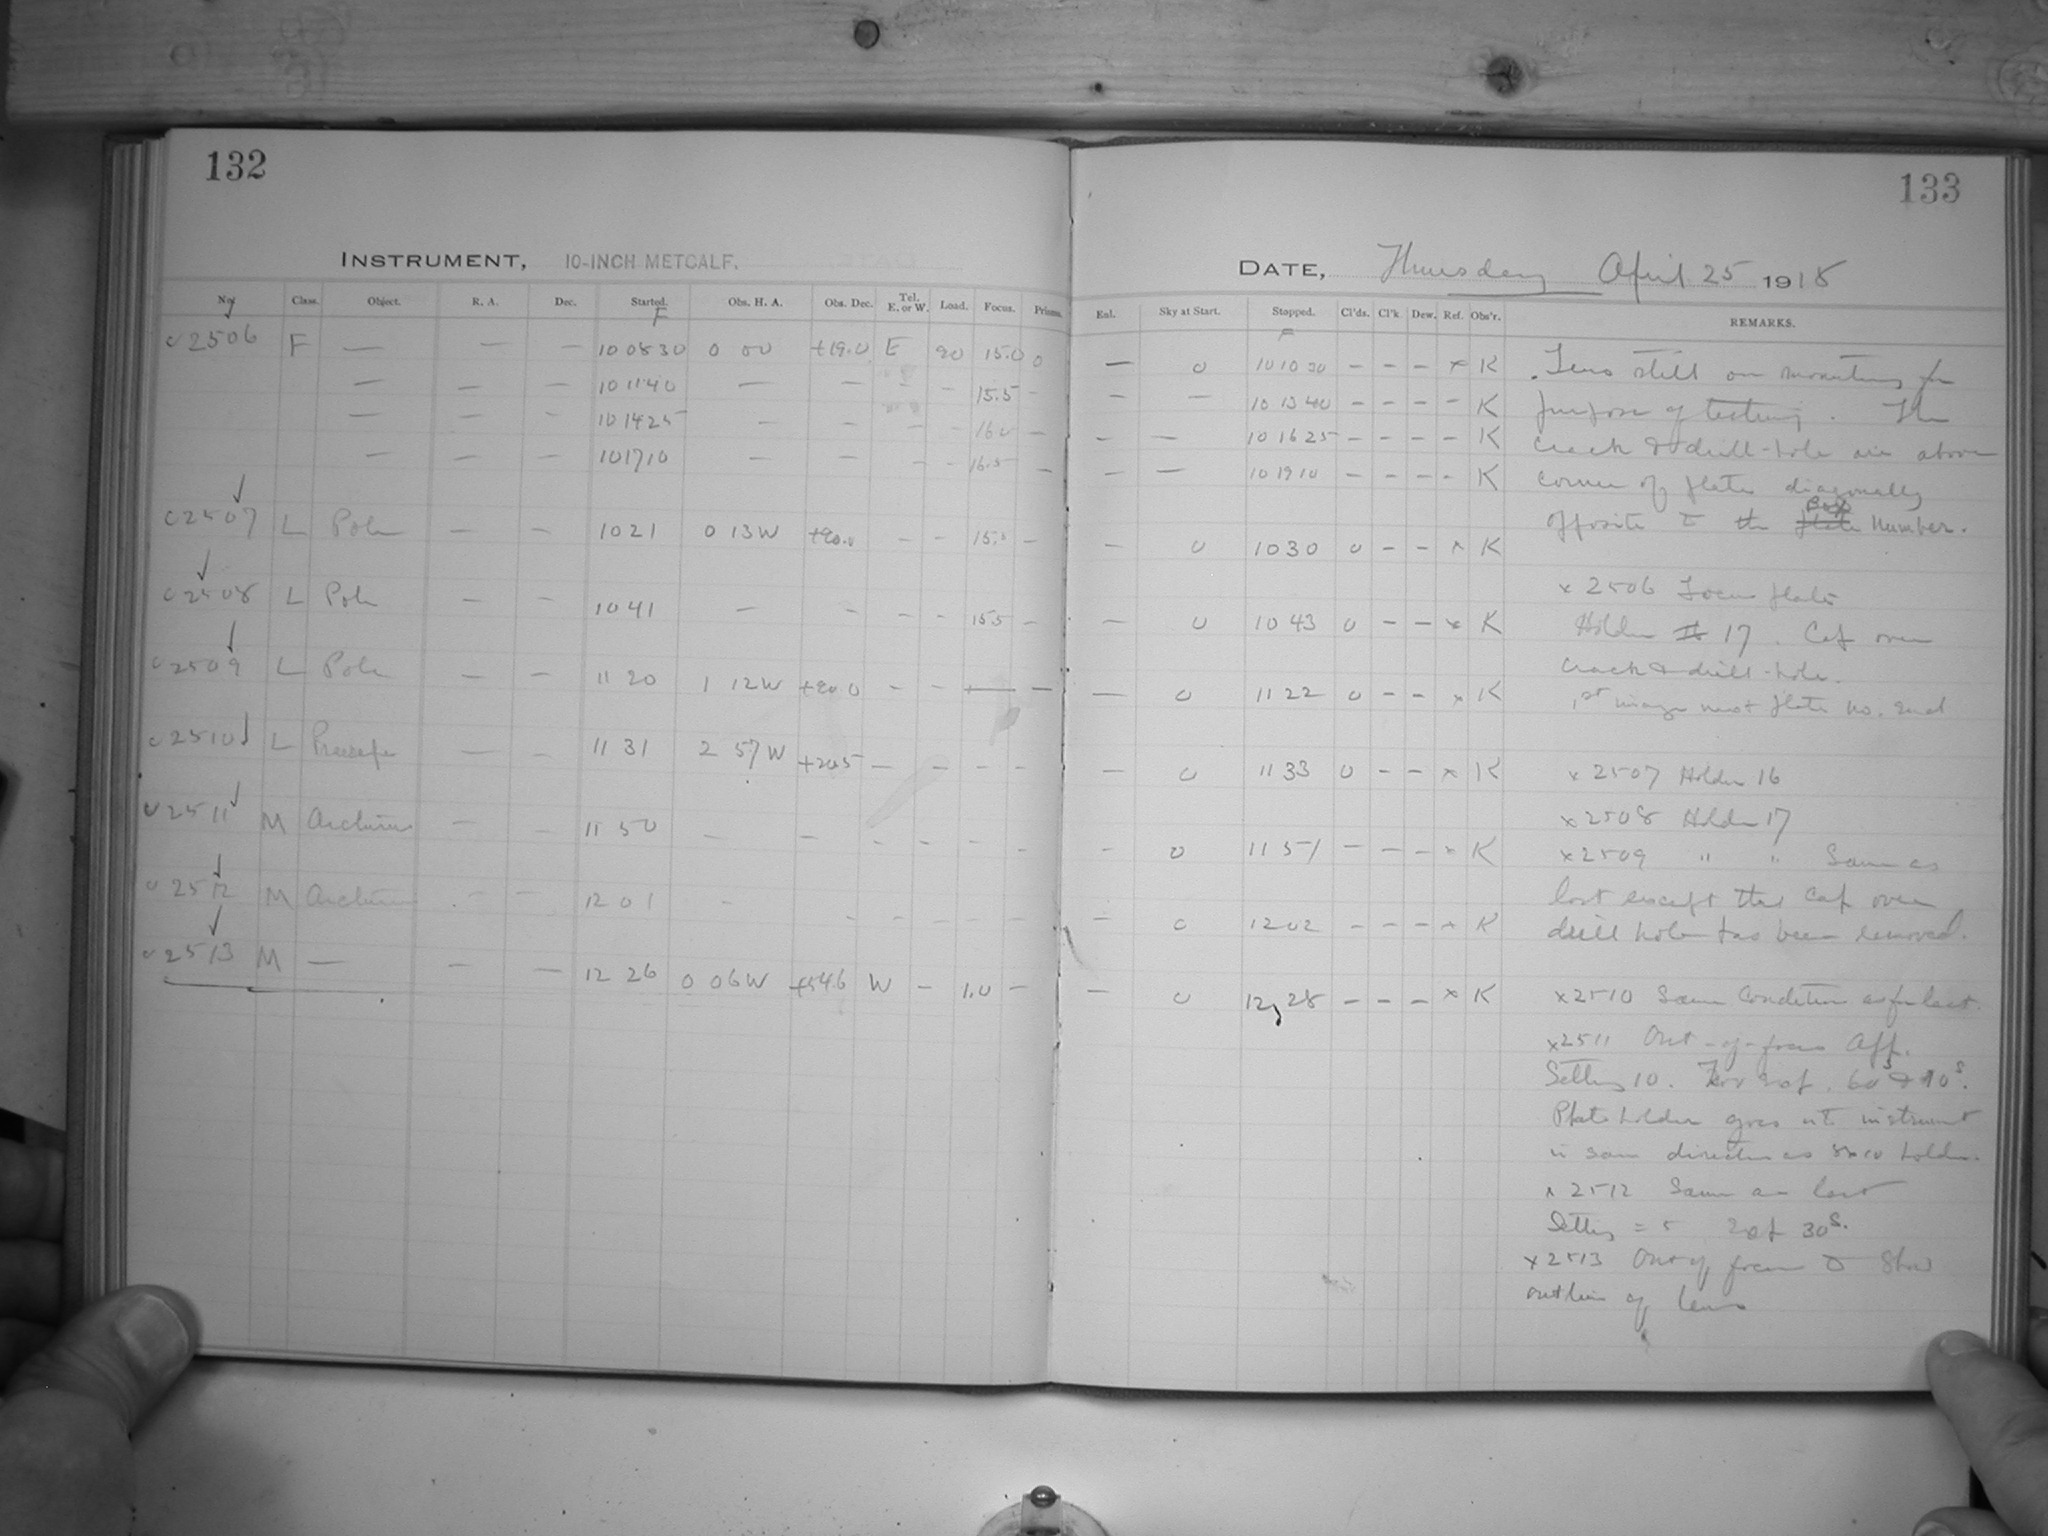 132
INSTRUMENT, 10-INCH METCALF.
No. Class. Object. R. A. Dec. Started. Obs. H. A. Obs. Dec. Tel. E. or W. Load. Focus. Prisms.
F
c 2506 F — — — 10 08 30 0 00 +19.0 E 90 15.0 0
— — — 10 11 40 — — - - 15.5 -
— — — 10 14 25 — — - - 16.0 —
— — — 10 17 10 — — - - 16.5 —
c 2507 L Pole — — 10 21 0 13 W +90.0 - - 15.5 —
c 2508 L Pole — — 10 41 — — - - 15.5 —
c 2509 L Pole — — 11 20 1 12 W +90 0 - - — —
c 2510 L Praesepe — — 11 31 2 57 W +20.5 — - - -
c 2511 M Arcturus — — 11 50 — — - - - -
c 2512 M Arcturus - — 12 01 - - - - - -
c 2513 M — — — 12 26 0 06 W +54.6 W - 1.0 —
133
DATE, Thursday April 25 1918
Enl. Sky at Start. Stopped. Cl'ds. Cl'k Dew. Ref. Obs'r. REMARKS.
F
— 0 10 10 30 - - - x K
- — 10 13 40 - - - - K
- — 10 16 25 - - - - K
- — 10 19 10 - - - - K
— 0 10 30 0 - - x K
— 0 10 43 0 - - x K
— 0 11 22 0 - - x K
— 0 11 33 0 - - x K
- 0 11 51 - - - x K
— 0 12 02 - - - x K
— 0 12 28 - - - x K
Lens still on mounting for
purpose of testing. The
crack & drill-hole are above
corner of plate diagonally
Box
opposite to the plate number.
x 2506 Focus plate
Holder 17. Cap over
crack & drill-hole.
1st image next plate no. end
x 2507 Holder 16
x 2508 Holder 17
x 2509 " " Same as
last except that cap over
drill hole has been removed.
x 2510 Same condition as for last.
x 2511 Out-of-focus App.
Setting 10. 2 exp. 60s & 10s.
Plate holder goes into instrument
in same direction as 8x10 holder.
x 2512 Same as last
Setting = 5 2 exp 30s.
x 2513 Out of focus to show
outline of lens